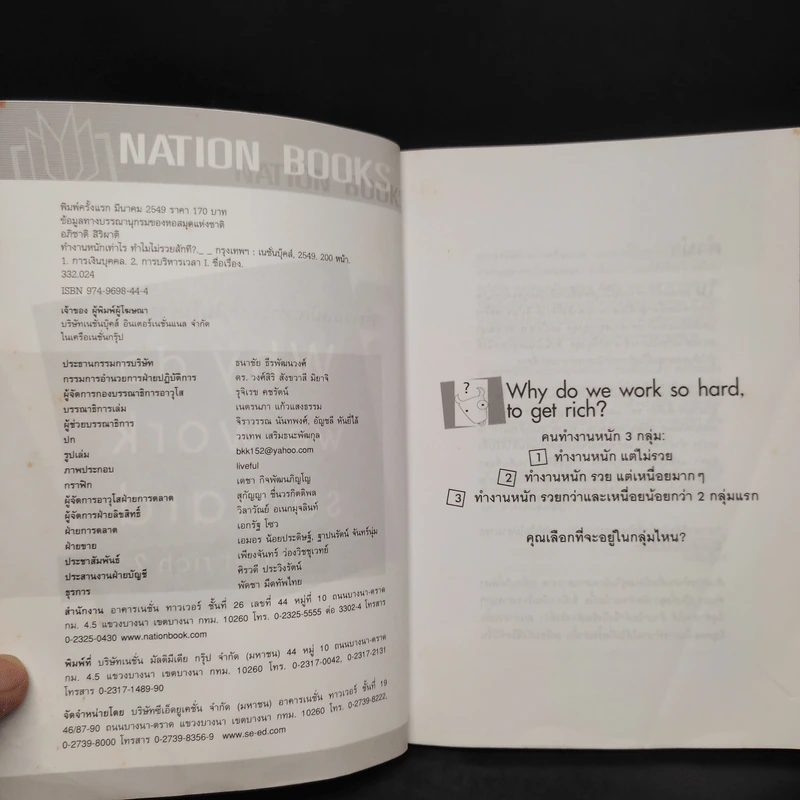 NATION BOOKS
NATION BOOKS
พิมพ์ครั้งแรก มีนาคม 2549 ราคา 170 บาท
ข้อมูลทางบรรณานุกรมของหอสมุดแห่งชาติ
อภิชาติ สิริผาติ
ทำงานหนักเท่าไร ทำไมไม่รวยสักที?._ _ กรุงเทพฯ : เนชั่นบุ๊คส์, 2549. 200 หน้า.
1. การเงินบุคคล. 2. การบริหารเวลา I. ชื่อเรื่อง.
332.024
ISBN 974-9698-44-4
เจ้าของ ผู้พิมพ์ผู้โฆษณา
บริษัทเนชั่นบุ๊คส์ อินเตอร์เนชั่นแนล จำกัด
ในเครือเนชั่นกรุ๊ป
ประธานกรรมการบริษัท ธนาชัย ธีรพัฒนวงศ์
กรรมการอำนวยการฝ่ายปฏิบัติการ ดร. วงศ์สิริ สังขวาสี มิยาจิ
ผู้จัดการกองบรรณาธิการอาวุโส รุจิเรข คชรัตน์
บรรณาธิการเล่ม เนตรนภา แก้วแสงธรรม
ผู้ช่วยบรรณาธิการ จิราวรรณ นันทพงศ์, อัญชลี หันยี่โล้
ปก วรเทพ เสริมธนะพัฒกุล
รูปเล่ม bkk152@yahoo.com
ภาพประกอบ liveful
กราฟิก เดชา กิจพัฒนภิญโญ
ผู้จัดการอาวุโสฝ่ายการตลาด สุกัญญา ชีนวรกิตติพล
ผู้จัดการฝ่ายลิขสิทธิ์ วิลาวัณย์ อเนกมุจลินท์
ฝ่ายการตลาด เอกรัฐ โชว
ฝ่ายขาย เอมอร น้อยประดิษฐ์, ฐาปนรัตน์ จันทร์นุ่ม
ประชาสัมพันธ์ เพียงจันทร์ ว่องวิชชุเวทย์
ประสานงานฝ่ายบัญชี ศิรวดี ประวิงรัตน์
ธุรการ พัดชา มีดทัพไทย
สำนักงาน อาคารเนชั่น ทาวเวอร์ ชั้นที่ 26 เลขที่ 44 หมู่ที่ 10 ถนนบางนา-ตราด
กม. 4.5 แขวงบางนา เขตบางนา กทม. 10260 โทร. 0-2325-5555 ต่อ 3302-4 โทรสาร
0-2325-0430 www.nationbook.com
พิมพ์ที่ บริษัทเนชั่น มัลติมีเดีย กรุ๊ป จำกัด (มหาชน) 44 หมู่ 10 ถนนบางนา-ตราด
กม. 4.5 แขวงบางนา เขตบางนา กทม. 10260 โทร. 0-2317-0042, 0-2317-2131
โทรสาร 0-2317-1489-90
จัดจำหน่ายโดย บริษัทซีเอ็ดยูเคชั่น จำกัด (มหาชน) อาคารเนชั่น ทาวเวอร์ ชั้นที่ 19
46/87-90 ถนนบางนา-ตราด แขวงบางนา เขตบางนา กทม. 10260 โทร. 0-2739-8222,
0-2739-8000 โทรสาร 0-2739-8356-9 www.se-ed.com
?
Why do we work so hard,
to get rich?
คนทำงานหนัก 3 กลุ่ม:
1 ทำงานหนัก แต่ไม่รวย
2 ทำงานหนัก รวย แต่เหนื่อยมากๆ
3 ทำงานหนัก รวยกว่าและเหนื่อยน้อยกว่า 2 กลุ่มแรก
คุณเลือกที่จะอยู่ในกลุ่มไหน?